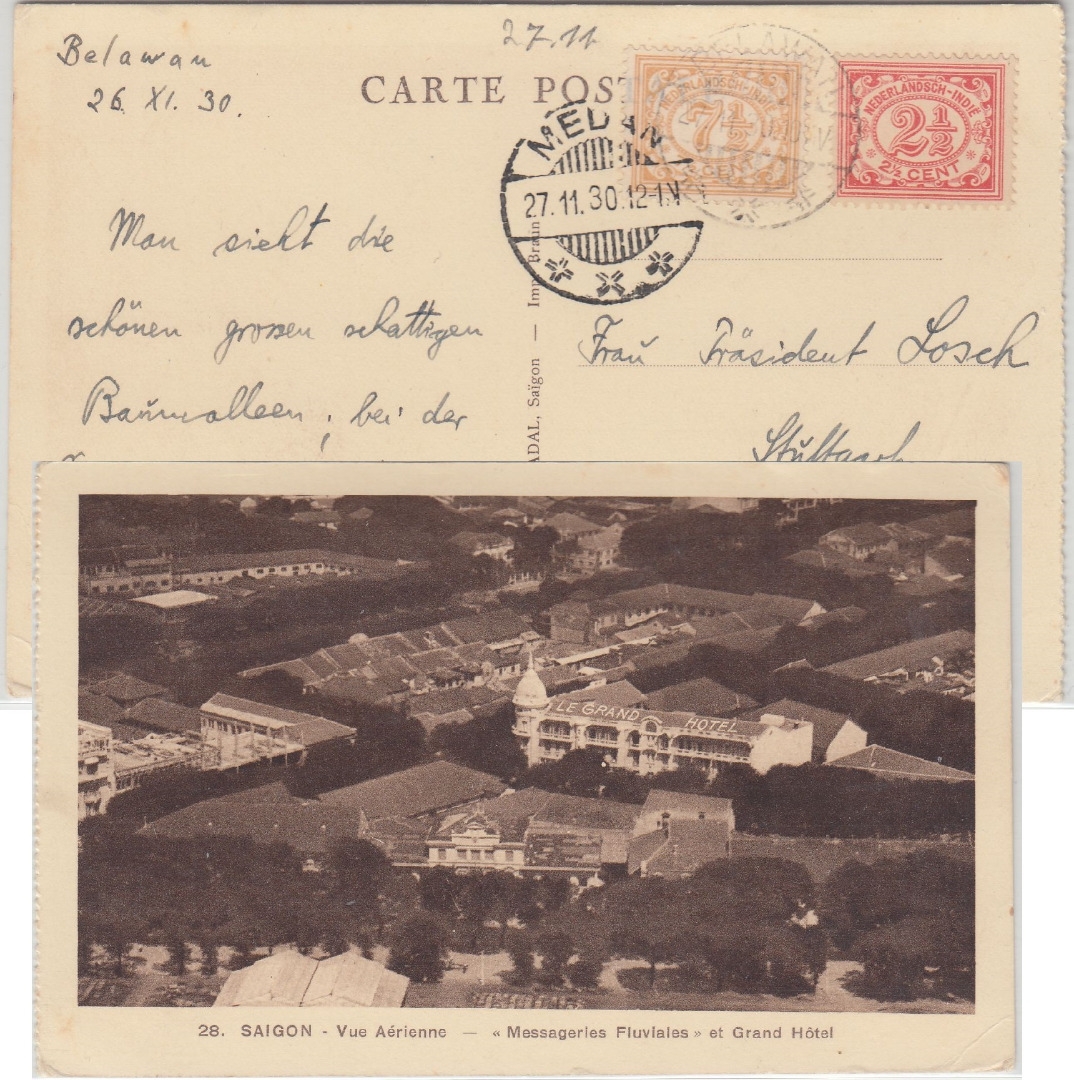 Belawan
26. XI. 30.
27.11
CARTE POST
NEDERLANDSCH-INDIË
7½
CENT
NEDERLANDSCH-INDIË
2½
2½ CENT
BELAWAN
MEDAN
27.11.30.12-1.V
Man sieht die
schönen grossen schattigen
Baumalleen, bei der
ADAL, Saïgon — Imp. Braun
Frau Präsident Losch
Stuttgart
LE GRAND HOTEL
28. SAIGON - Vue Aérienne — « Messageries Fluviales » et Grand Hôtel